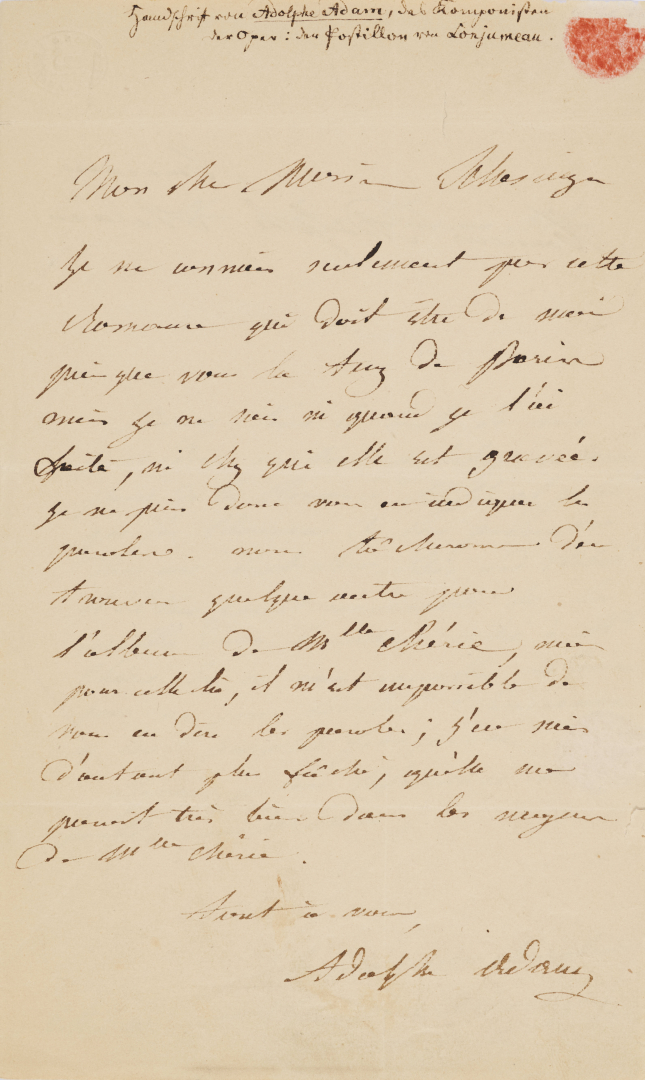 Handschrift von Adolphe Adam, des Komponisten
der Oper: der Postillon von Lonjumeau.
Mon cher Monsieur Schlesinger
Je ne connais seulement pas cette
Romance qui doit être de moi
puisque vous la de
mais je ne sais ni quand je l'ai
faite, ni chez qui elle est gravée.
je ne puis donc vous en indiquer les
paroles. nous tâcherons d'en
trouver quelque autre pour
l'album de Mlle chérie, mais
pour celle là, il m'est impossible de
vous en dire les paroles; j'en suis
d'autant plus fâché, qu'elle me
parait très bien dans les moyens
de Mlle chérie.
Tout à vous,
Adolphe Adam